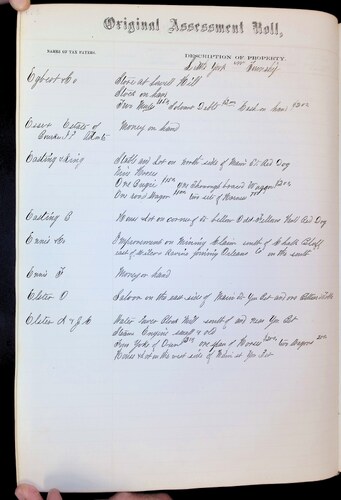 Original Assessment Roll,
NAMES OF TAX PAYERS.
DESCRIPTION OF PROPERTY.
Little York Township
Egbert & Co. Store at Lowell Hill
Stock on hand
Solvent Debts Cash on hand
Essex Estate of Money on hand
Easting & King Stable and Lot on north side of Main St Red Dog
Nine Horses
One Bugie One Thorough braced Wagon
One Wagon Six set of Harness
Easting C House & Lot on corner of below Odd Fellows Hall Red Dog
Ennis Improvement on Mining Claim south of Chalk Bluff
east of Wallace Ravine joining Orleans Co on the south
Ennis F Money on hand
Elster O Saloon on the east side of Main St You Bet and one
Elster A & J. A. Water Power Block Mill south of and near You Bet
Steam Engine small & old
Yoke of Oxen one span of Horses two Wagons
House & Lot on the west side of Main St You Bet